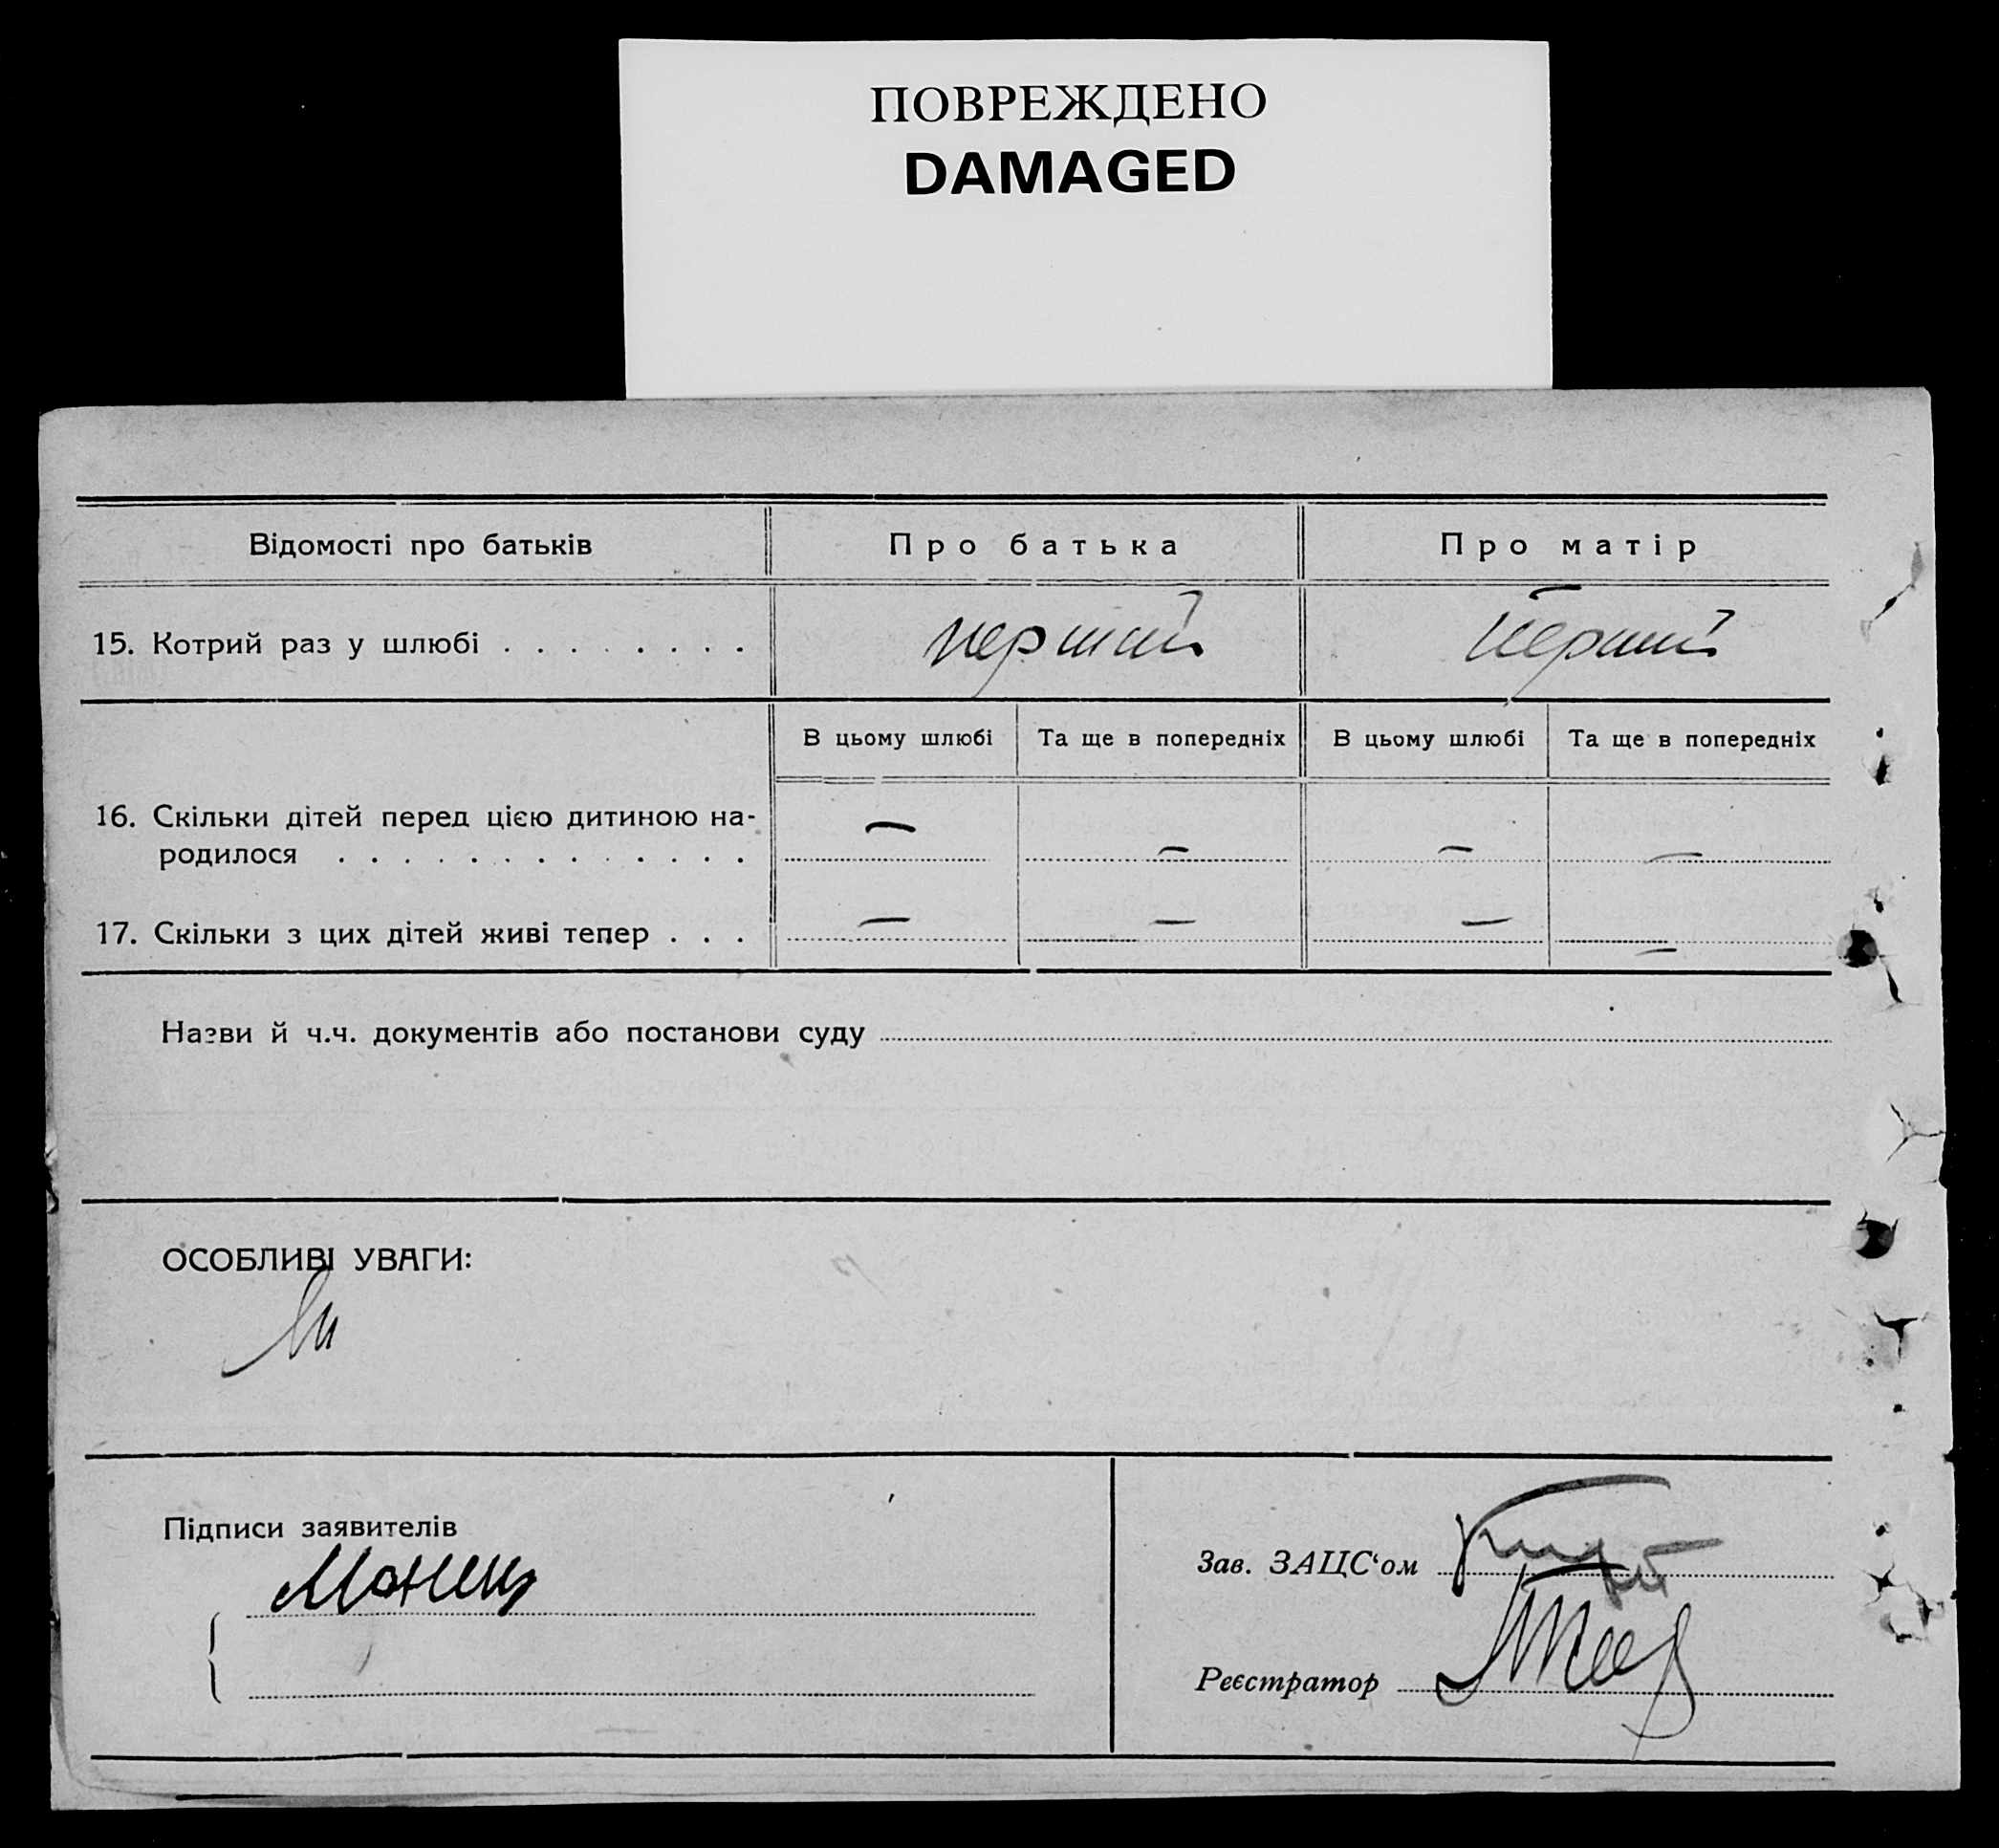 ПОВРЕЖДЕНО
DAMAGED
Відомості про батьків Про батька Про матір
15. Котрий раз у шлюбі . . . . . . . . перший перший
В цьому шлюбі Та ще в попередніх В цьому шлюбі Та ще в попередніх
16. Скільки дітей перед цією дитиною на-
родилося . . . . . . . . . . . . . — — — —
17. Скільки з цих дітей живі тепер . . . — — — —
Назви й ч.ч. документів або постанови суду
ОСОБЛИВІ УВАГИ:
Підписи заявителів
Зав. ЗАЦС‘ом
Реєстратор